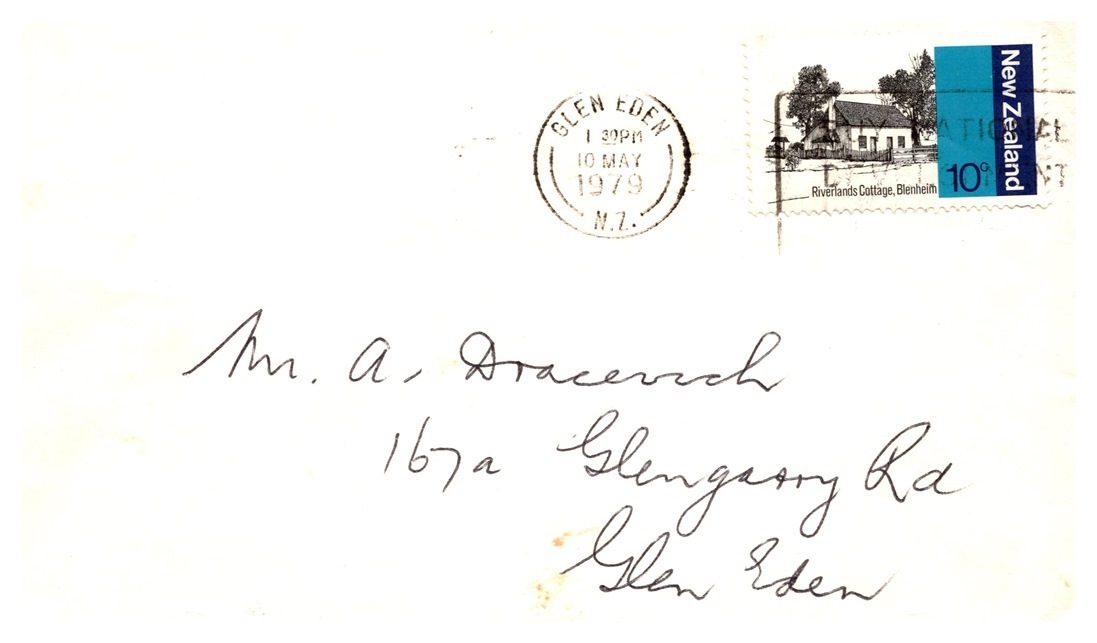 GLEN EDEN
1 30PM
10 MAY
1979
N.Z.
New Zealand
10c
Riverlands Cottage, Blenheim
NATIONAL
DEVELOPMENT
Mr. A. Dracevich
167a Glengarry Rd
Glen Eden